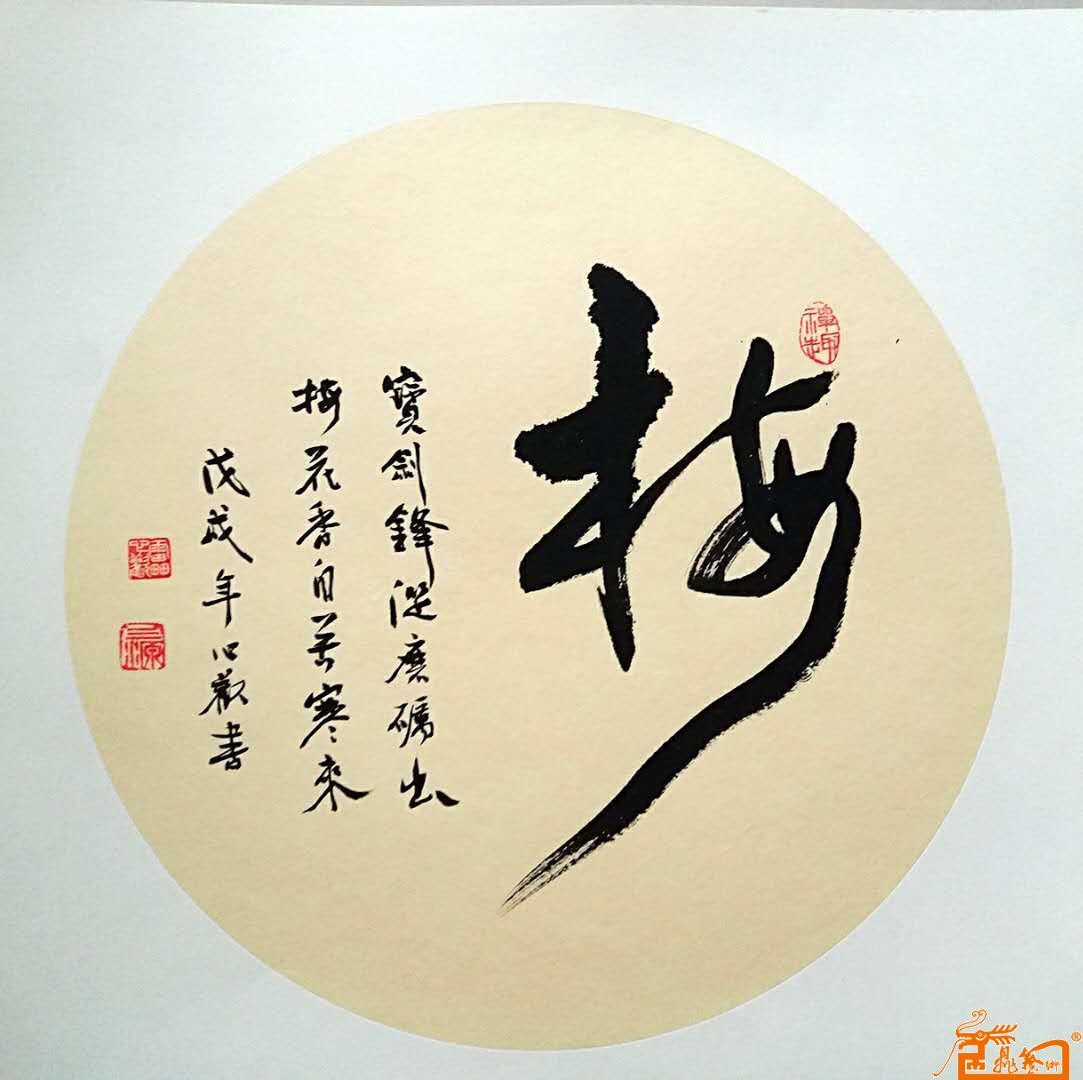 梅
寶劍鋒從磨礪出
梅花香自苦寒來
戊戌年心歡書